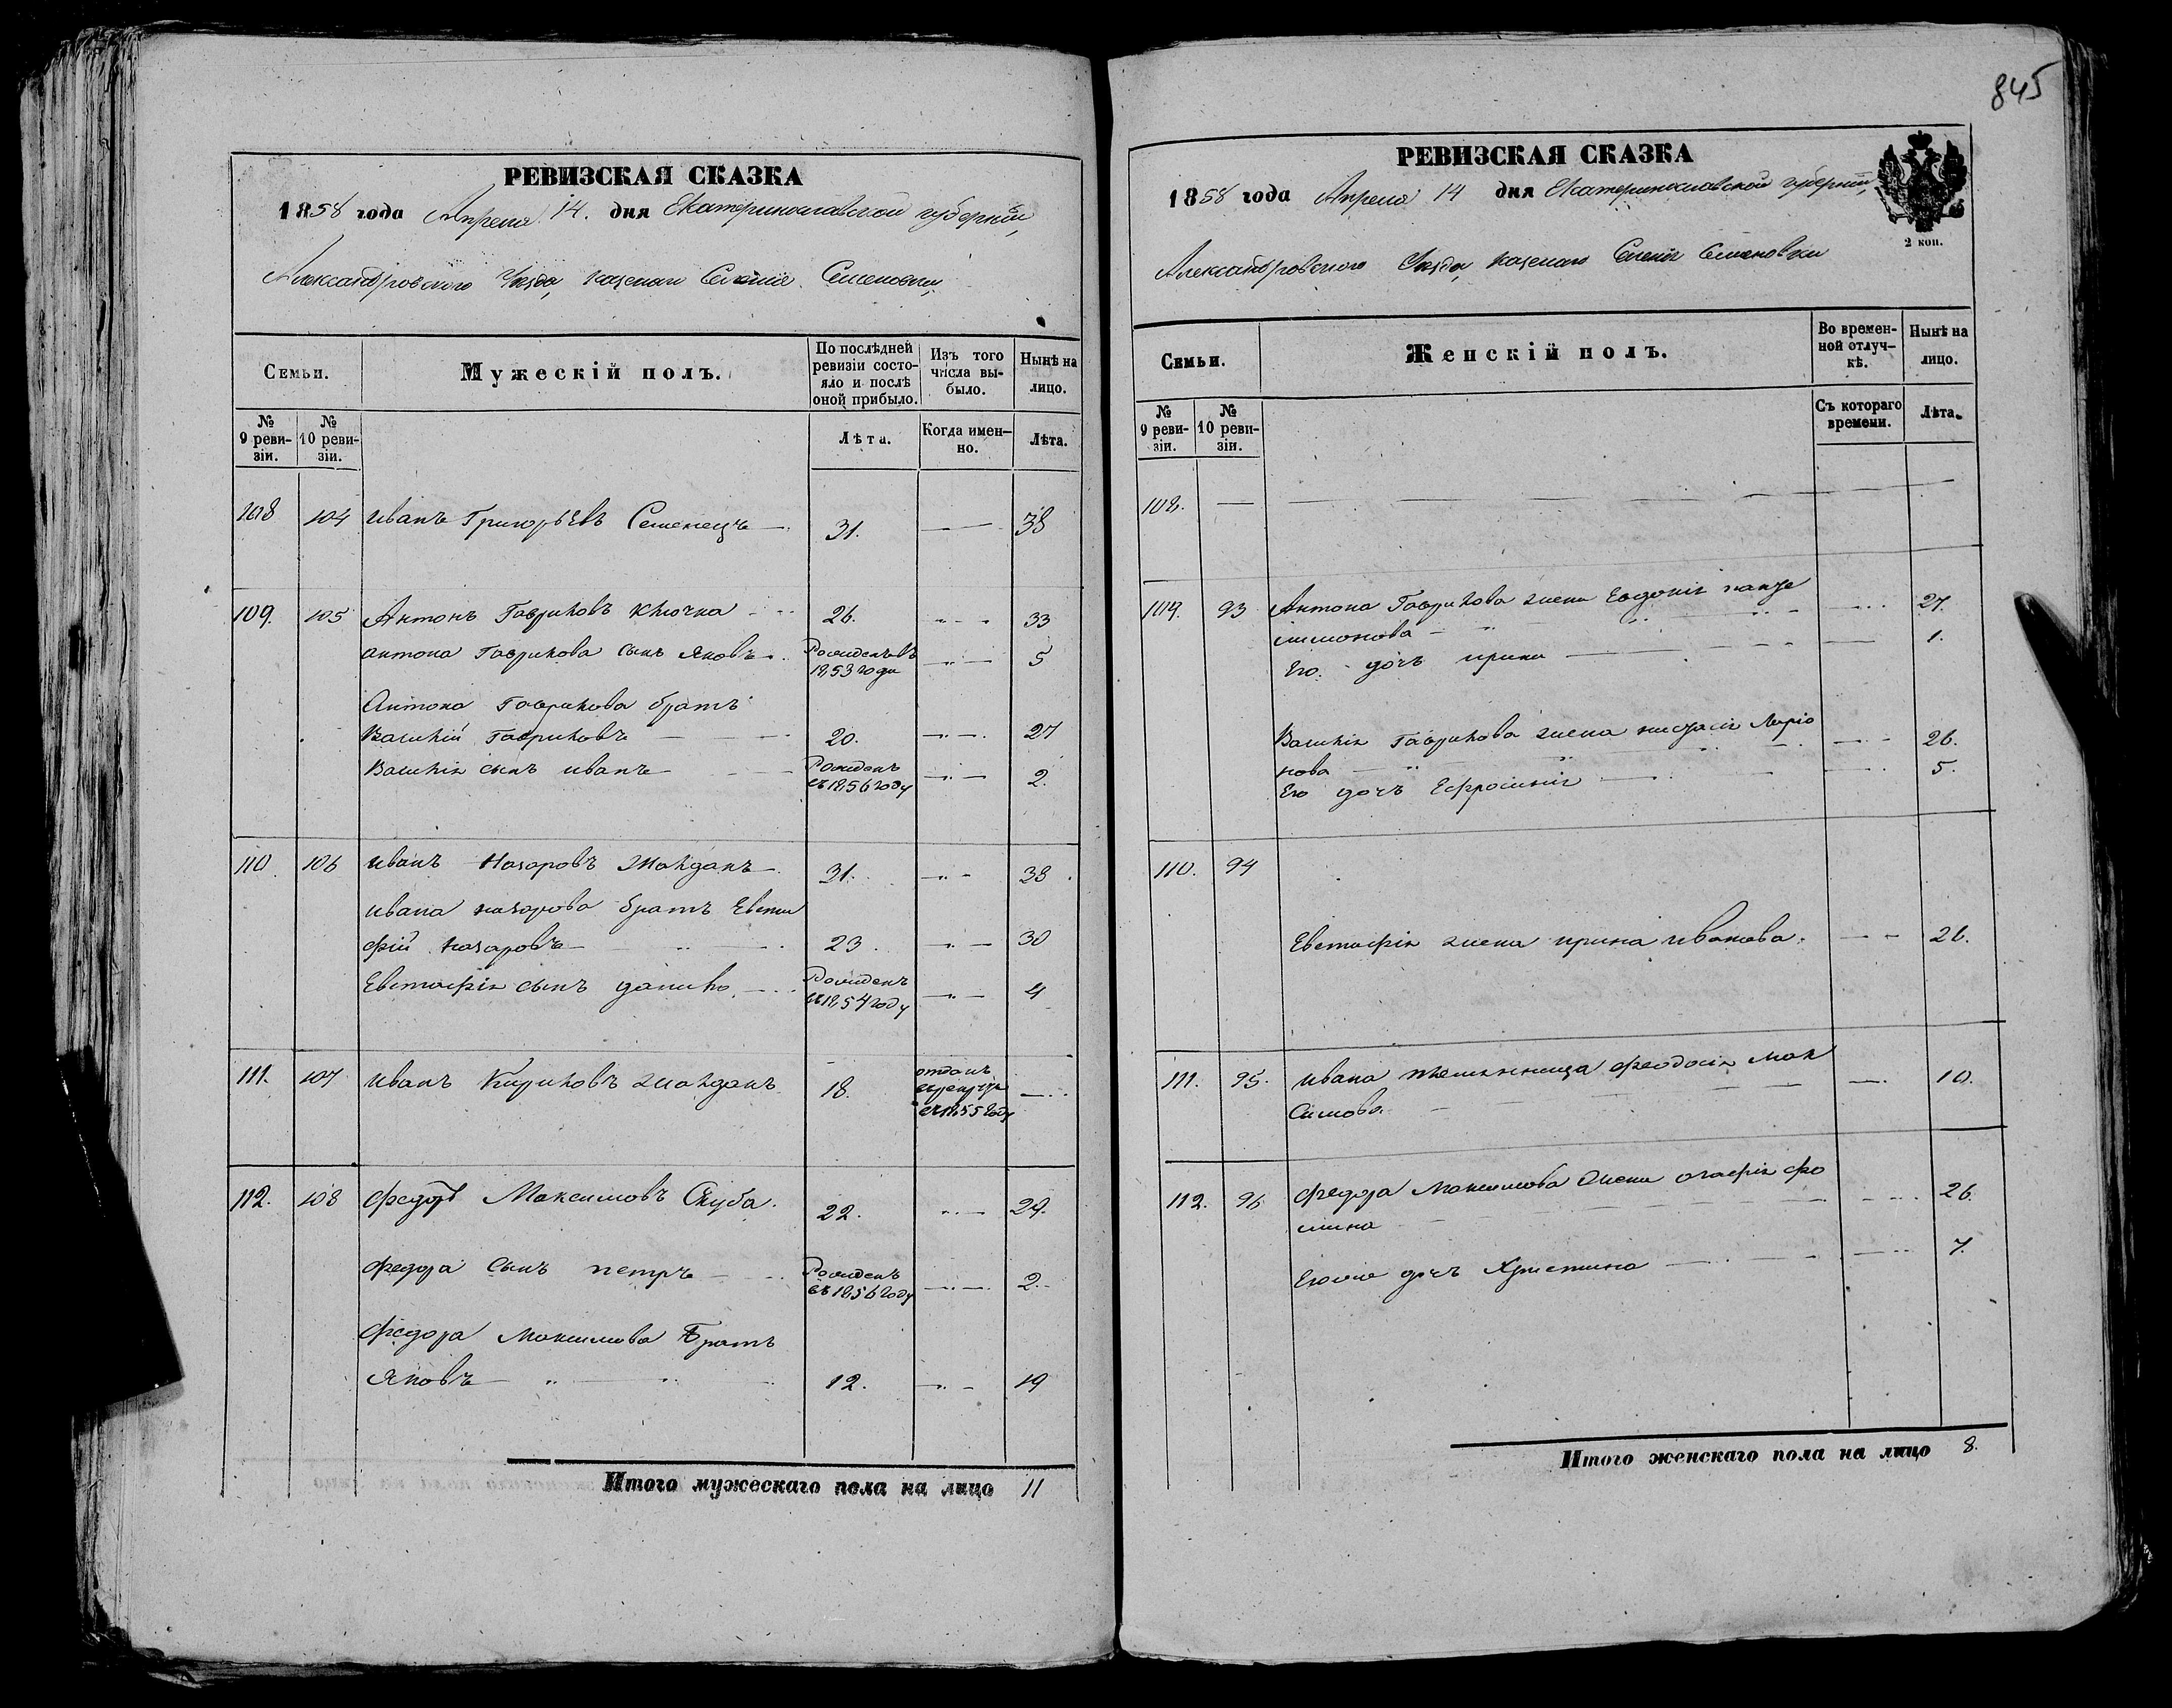 845
РЕВИЗСКАЯ СКАЗКА
1858 года Апреля 14. дня Екатеринославской губернии,
Александровского Уезда, казенаго Селенія Семеновки,
Семьи.
Мужескій полъ.
По послѣдней ревизіи состояло и послѣ оной прибыло.
Изъ того числа выбыло.
Нынѣ на лицо.
№ 9 ревизіи.
№ 10 ревизіи.
Лѣта.
Когда именно.
Лѣта.
108 104 Иванъ Григорьевъ Семенецъ — 31. — 38
109. 105 Антонъ Гавриловъ Ключка 26. 33
Антона Гаврилова сынъ Яковъ Рожденъ въ 1853 годи 5
Антона Гаврилова братъ
Василій Гавриловъ — 20. 27
Василія сынъ Иванъ — Рожденъ въ 1856 году 2.
110. 106 Иванъ Назаровъ Жайданъ 31. 38.
Ивана Назарова братъ Евста
фій Назаровъ — 23. 30
Евстафія сынъ Данило. Рожденъ въ 1854 году 4
111. 107 Иванъ Кириловъ Жайданъ 18. отданъ въ рекруты въ 1855 году
112. 108 Федоръ Максимовъ Скуба. 22. 29.
Федора сынъ Петръ — Рожденъ въ 1856 году 2.
Федора Максимова Братъ
Яковъ — 12. 19
Итого мужескаго пола на лицо 11
РЕВИЗСКАЯ СКАЗКА
1858 года Апреля 14 дня Екатеринославской губерніи,
2 коп.
Александровского Уезда, казенаго Селенія Семеновки
Семьи.
Женскій полъ.
Во временной отлучкѣ.
Нынѣ на лицо.
№ 9 ревизіи.
№ 10 ревизіи.
Съ котораго времени.
Лѣта.
108. —
109. 93 Антона Гаврилова жена Евдокія 27.
Его дочь Ирина — 1.
Василія Гаврилова жена Настасія Ларіо
нова 26.
Его дочь Ефросинія 5.
110. 94
Евстафія жена Ирина Иванова. 26.
111. 95. Ивана племянница Феодосія Мак
симова. 10.
112. 96 Федора Максимова жена Агафія Фо
мина 26.
Его дочь Христина 7.
Итого женскаго пола на лицо 8.